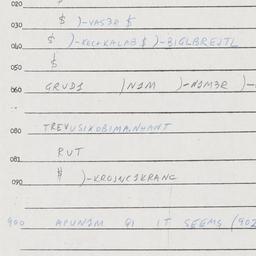 020
030 $ )-VAS3R $
040 $ )-KECAKALAB $ )-BIGLBREJTL
050 $
060 GRUD1 )N1M )-N1M3R )-
080 TREVUSIKOBIMAINHANT
081 RUT
090 $ )-KROJNC1KRANG
900 APUN1M QI IT SEEMS (902